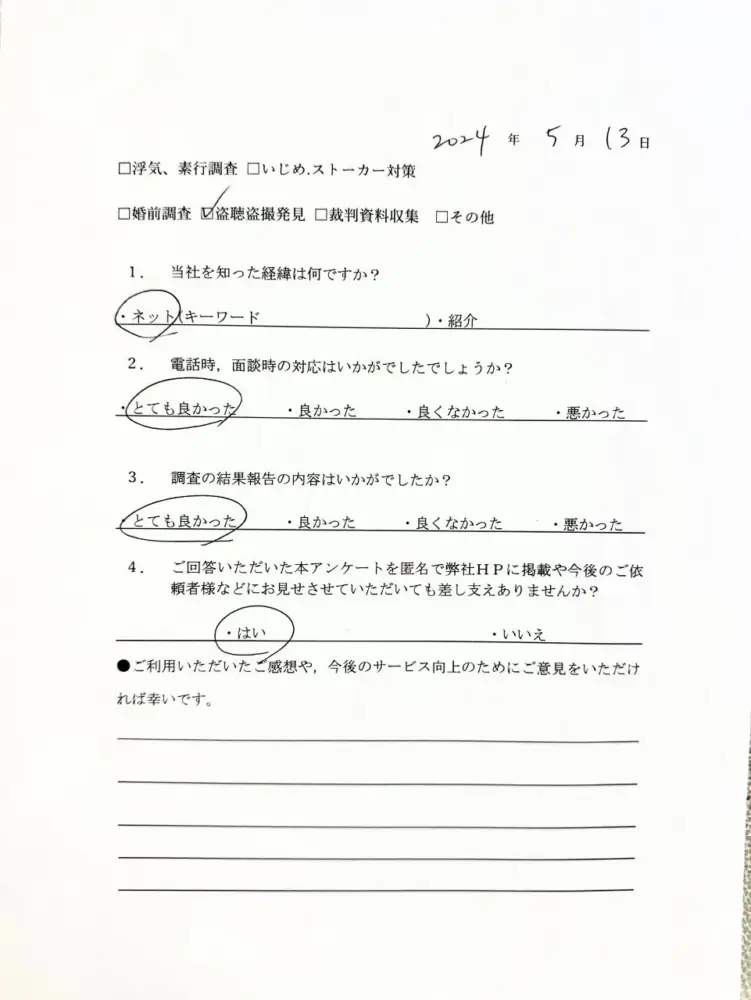 2024 年 5 月 13 日
□浮気、素行調査 □いじめ.ストーカー対策
□婚前調査 ☑盗聴盗撮発見 □裁判資料収集 □その他
1. 当社を知った経緯は何ですか？
・ネット(キーワード )・紹介
2. 電話時，面談時の対応はいかがでしたでしょうか？
・とても良かった ・良かった ・良くなかった ・悪かった
3. 調査の結果報告の内容はいかがでしたか？
・とても良かった ・良かった ・良くなかった ・悪かった
4. ご回答いただいた本アンケートを匿名で弊社ＨＰに掲載や今後のご依
頼者様などにお見せさせていただいても差し支えありませんか？
・はい ・いいえ
●ご利用いただいたご感想や，今後のサービス向上のためにご意見をいただけ
れば幸いです。